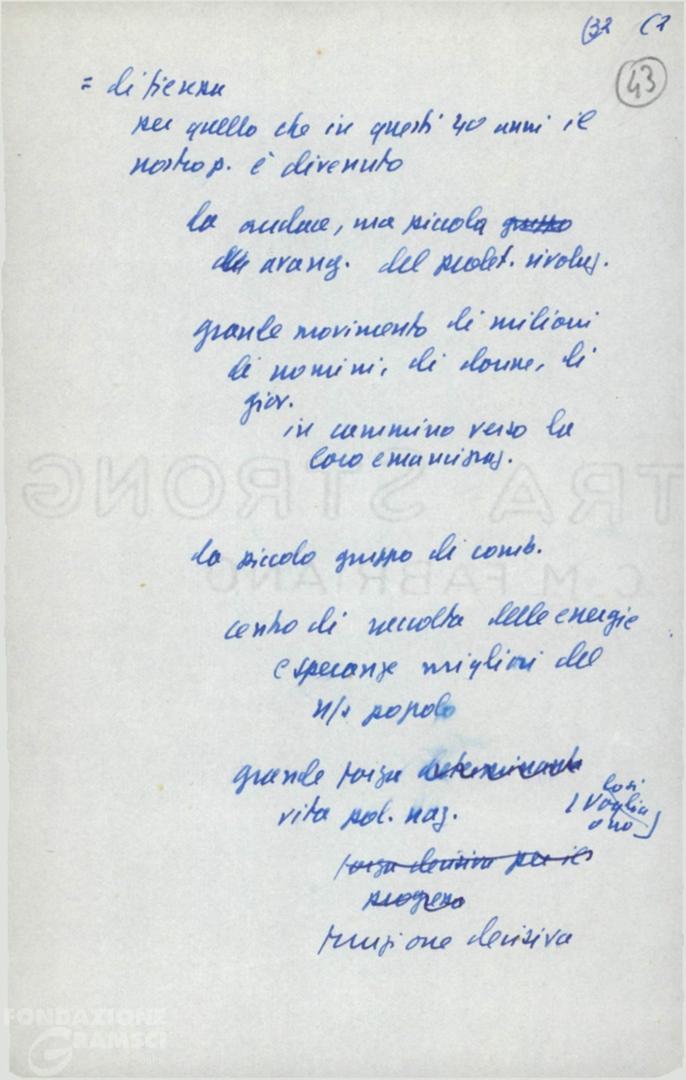 (32 (2
43
= di fierezza
per quello che in questi 40 anni il
nostro p. è divenuto
da audace, ma piccola gruppo
avang. del prolet. rivoluz.
grande movimento di milioni
di uomini, di donne, di
giov.
in cammino verso la
loro emancipaz.
da piccolo gruppo di comb.
centro di raccolta delle energie
e speranze migliori del
n/s popolo
grande forza determinante
vita pol. naz.
(così
voglia
ono)
forza decisiva per il
progresso
funzione decisiva
EXTRA STRONG
C.M. FABRIANO
FONDAZIONE
GRAMSCI